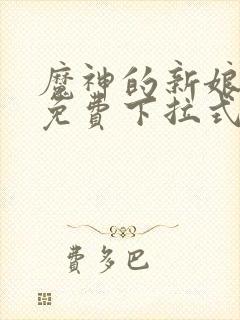 魔神的新娘
免費下拉式
費多巴